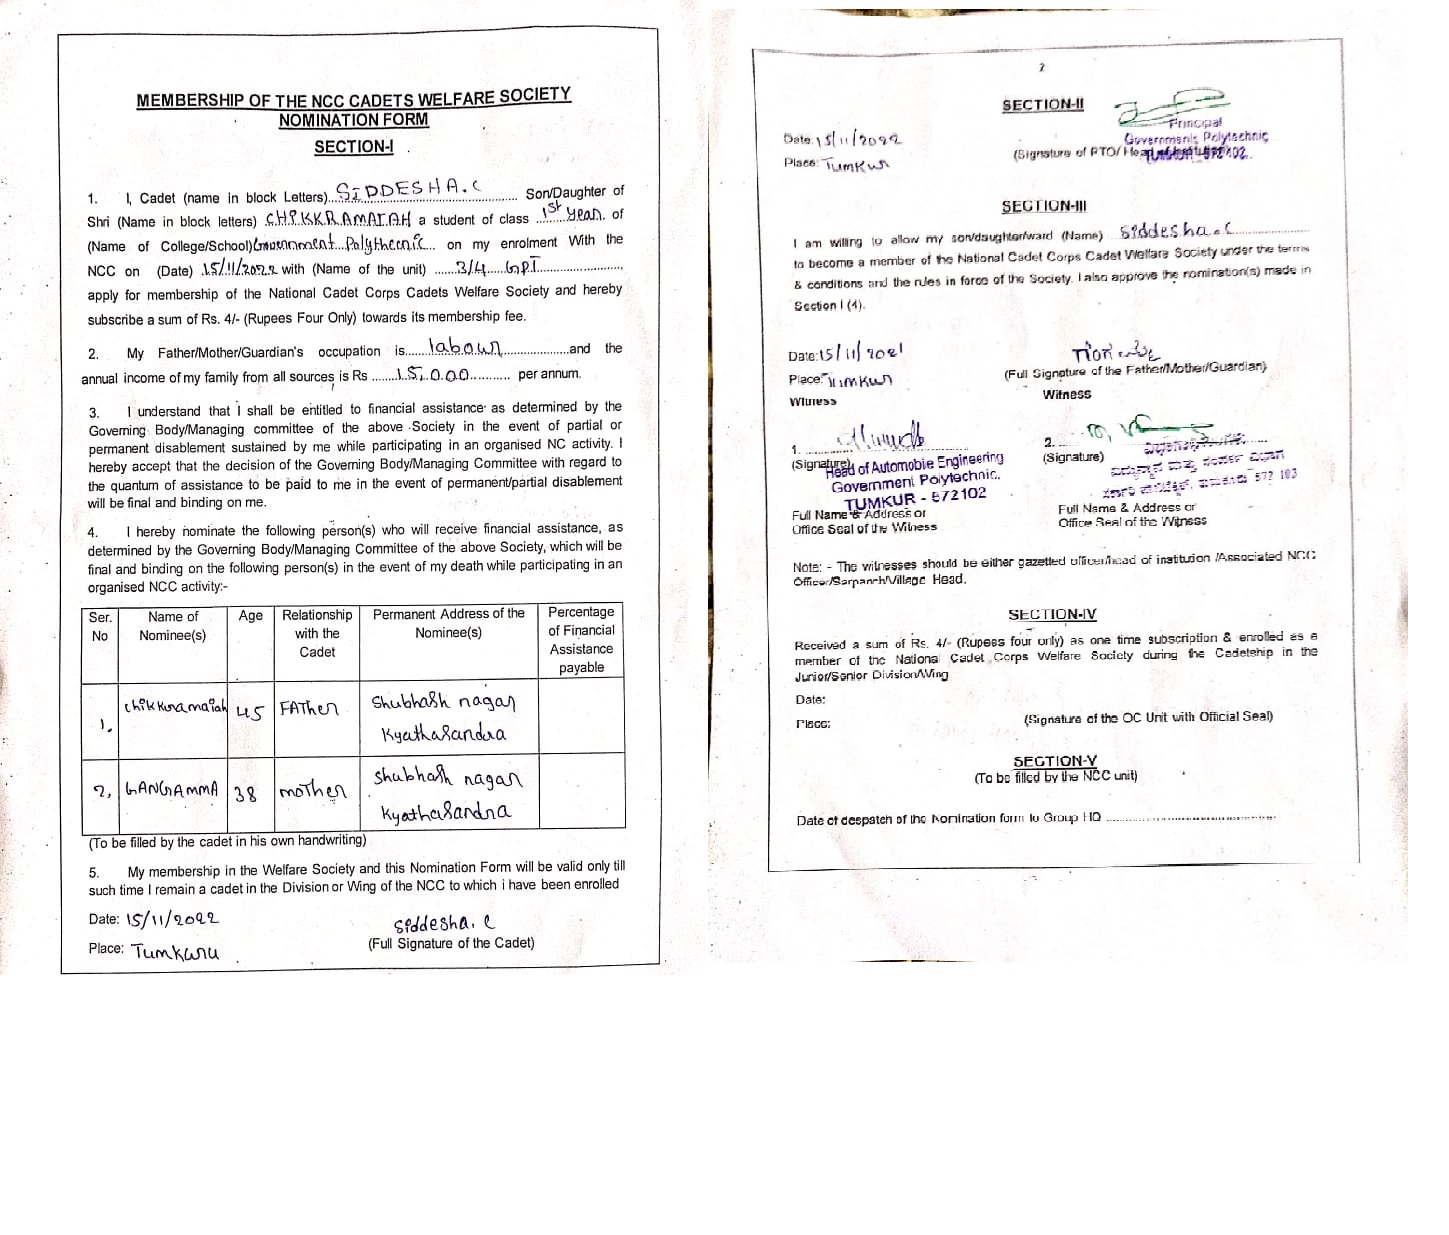 MEMBERSHIP OF THE NCC CADETS WELFARE SOCIETY
NOMINATION FORM
SECTION-I
1. I, Cadet (name in block Letters)..SIDDESHA.C.......... Son/Daughter of
Shri (Name in block letters) CHIKKRAMAIAH a student of class ..1st year. of
(Name of College/School) Government Polythecnic.. on my enrolment With the
NCC on (Date) 15/11/2022 with (Name of the unit) ......3/4.....GPT....................,
apply for membership of the National Cadet Corps Cadets Welfare Society and hereby
subscribe a sum of Rs. 4/- (Rupees Four Only) towards its membership fee.
2. My Father/Mother/Guardian's occupation is......labour..................and the
annual income of my family from all sources is Rs .......15,000.......... per annum.
3. I understand that I shall be entitled to financial assistance as determined by the
Governing Body/Managing committee of the above Society in the event of partial or
permanent disablement sustained by me while participating in an organised NC activity. I
hereby accept that the decision of the Governing Body/Managing Committee with regard to
the quantum of assistance to be paid to me in the event of permanent/partial disablement
will be final and binding on me.
4. I hereby nominate the following person(s) who will receive financial assistance, as
determined by the Governing Body/Managing Committee of the above Society, which will be
final and binding on the following person(s) in the event of my death while participating in an
organised NCC activity:-
Ser. No | Name of Nominee(s) | Age | Relationship with the Cadet | Permanent Address of the Nominee(s) | Percentage of Financial Assistance payable
1. chikkuramaiah 45 FATher Shubhash nagar
Kyathasandra
2, GANGAMMA 38 mother Shubhash nagar
Kyathasandra
(To be filled by the cadet in his own handwriting)
5. My membership in the Welfare Society and this Nomination Form will be valid only till
such time I remain a cadet in the Division or Wing of the NCC to which i have been enrolled
Date: 15/11/2022
Siddesha. C
Place: Tumkuru
(Full Signature of the Cadet)
2
SECTION-II
Principal
Government Polytechnic
TUMKUR - 572102.
Date: 15/11/2022
(Signature of PTO/ Head of Institution)
Place: Tumkur
SECTION-III
I am willing to allow my son/daughter/ward (Name) Siddesha.C
to become a member of the National Cadet Corps Cadet Welfare Society under the terms
& conditions and the rules in force of the Society. I also approve the nomination(s) made in
Section I (4).
Date: 15/11/2021
Place: Tumkur
(Full Signature of the Father/Mother/Guardian)
Witness
Witness
1.
(Signature)
Head of Automobie Engineering
Government Polytechnic.
TUMKUR - 572102
Full Name & Address or
Office Seal of the Witness
2.
(Signature)
572 103
Full Name & Address or
Office Seal of the Witness
Note: - The witnesses should be either gazetted officer/head of institution /Associated NCC
Officer/Sarpanch/Village Head.
SECTION-IV
Received a sum of Rs. 4/- (Rupees four only) as one time subscription & enrolled as a
member of the National Cadet Corps Welfare Society during the Cadetship in the
Junior/Senior Division/Wing
Date:
Place:
(Signature of the OC Unit with Official Seal)
SECTION-V
(To be filled by the NCC unit)
Date of despatch of the Nomination form to Group HQ ........................................